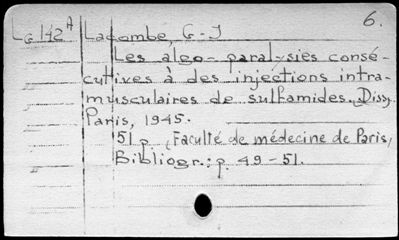 6.
LG 142 A Lacombe, G-J
Les algo-paralysies consé-
cutives à des injections intra-
musculaires de sulfamides. Diss.
Paris, 1945.
51 p. (Faculté de médecine de Paris,
Bibliogr.: p. 49-51.